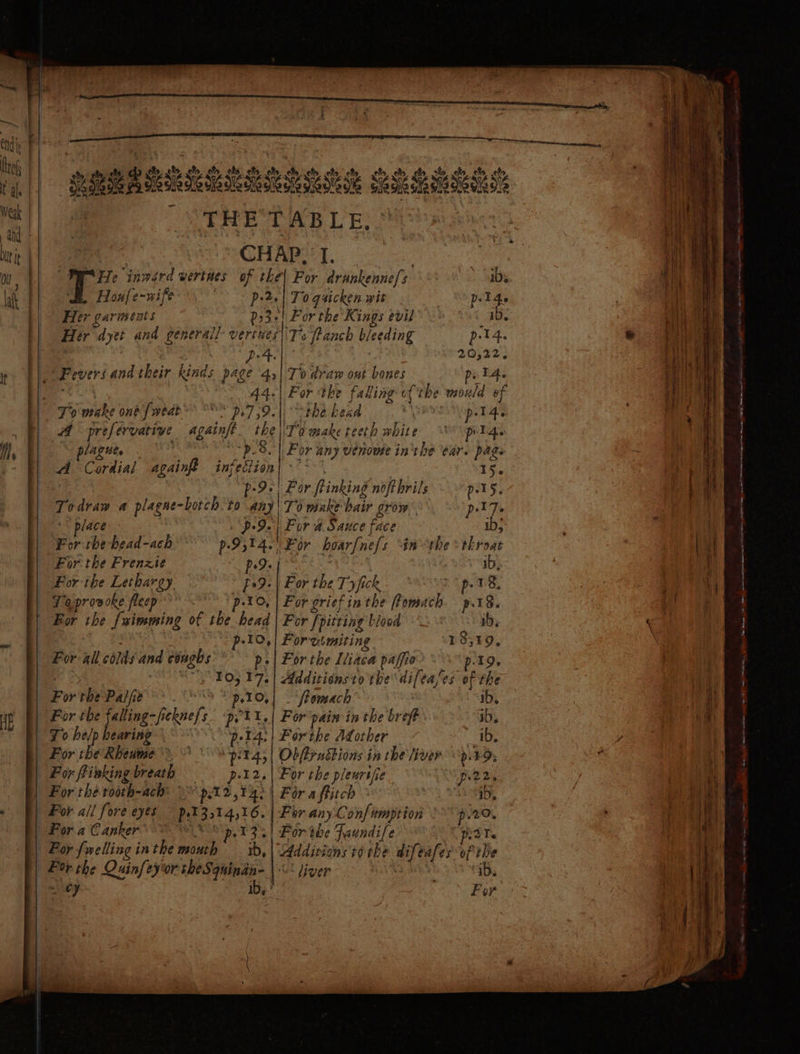 THE TABLE.
CHAP. I.
THe inward vertues of the
Houſe-wife p.2.
Her garments p.3.
Her dyet and generall vertues
p.4.
Fevers and their kinds page 4,
44.
To make one ſweat p.7,9.
A preſervative againſt the
plague. p.8.
A Cordial againſt infection
p.9.
To draw a plague-botch to any
place p.9.
For the head-ach p.9,14.
For the Frenzie p.9.
For the Lethargy p.9.
To provoke ſleep p.10,
For the ſwimming of the head
p.10,
For all colds and coughs p.
10, 17.
For the Palſie p.10,
For the falling-ſickneſs p.11.
To help hearing p.14.
For the Rheume p.14,
For ſtinking breath p.12.
For the tooth-ach p.12,14.
For all ſore eyes p.13,14,16.
For a Canker p.13.
For ſwelling in the mouth ib,
For the Quinſey or the Squinan-
cy ib,
For drunkenneſs ib.
To quicken wit p.14.
For the Kings evil ib.
To ſtanch bleeding p.14.
20,22.
To draw out bones p. 14.
For the falling of the mould of
the head p.14.
To make teeth white p.14.
For any venome in the ear. page
15.
For ſtinking noſthrils p.15.
To make hair grow p.17.
For a Sauce face ib,
For hoarſneſs in the throat
ib,
For the Tyſick p.18,
For grief in the ſtomach p.18.
For ſpitting blood ib.
For vomiting 18,19.
For the Iliaca paſſio p.19.
Additions to the diſeaſes of the
ſtomach ib,
For pain in the breſt ib,
For the Mother ib.
Obſtructions in the liver p.19,
For the pleuriſie p.22.
For a ſtitch ib,
For any Conſumption p.20.
For the Jaundiſe p.21.
Additions to the diſeaſes of the
liver ib.
For